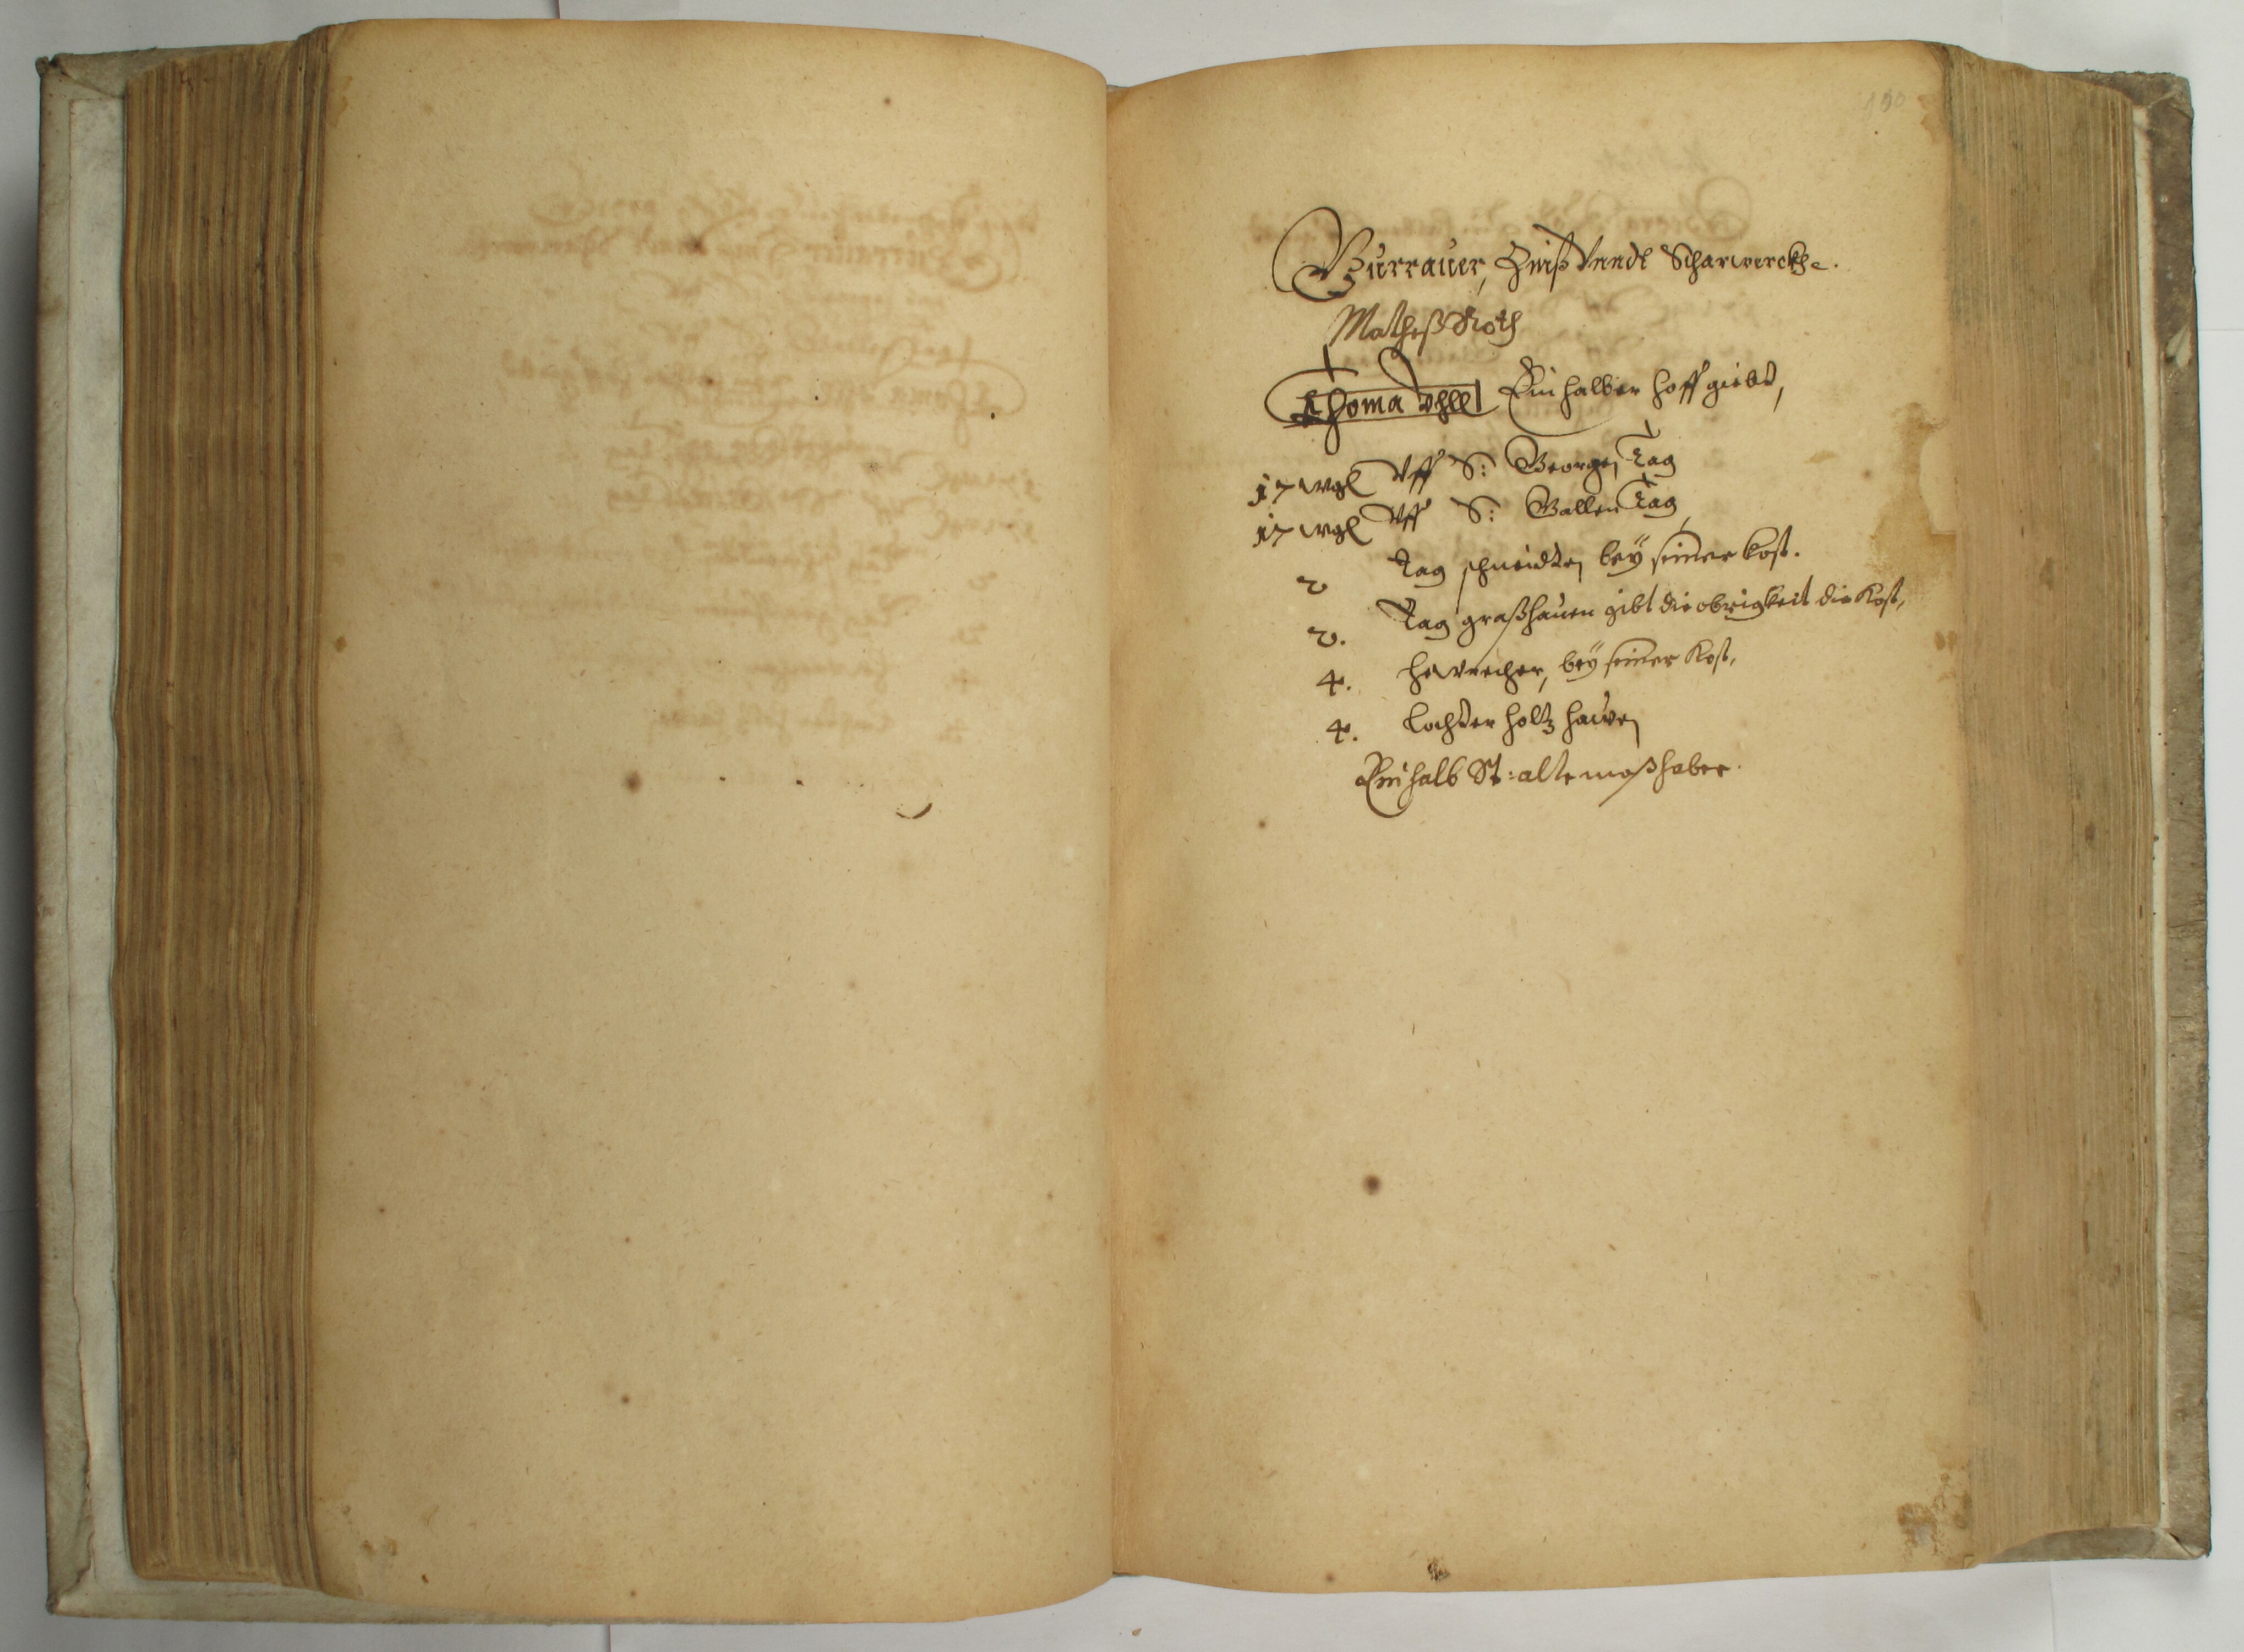 190
Burrauer, Zinß Vnndt Scharwerckhe.
Matheß Roth
Thoma Ein halber hoff giebt,
17 wgl Vff S: Georgen Tag
17 wgl Vff S: Gallen Tag,
2 Tag schneidten bey seiner kost.
2. Tag graßhauen gibt die obrigkeit die Kost,
4. hewrecher, bey seiner Kost,
4. Lachter holtz hawen
Ein halb St: alte maß haber.